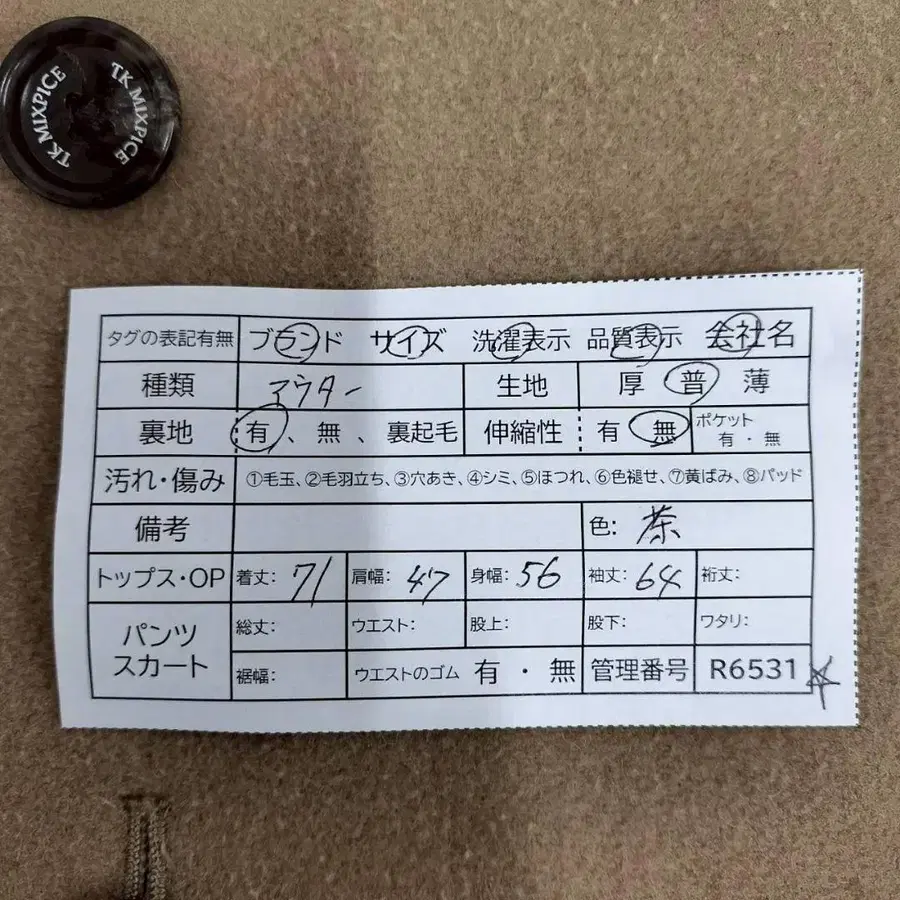 TK MIXPICE
TK MIXPICE
タグの表記有無 ブランド サイズ 洗濯表示 品質表示 会社名
種類 アウター 生地 厚 普 薄
裏地 有、無、裏起毛 伸縮性 有 無 ポケット 有・無
汚れ・傷み ①毛玉、②毛羽立ち、③穴あき、④シミ、⑤ほつれ、⑥色褪せ、⑦黄ばみ、⑧パッド
備考 色: 茶
トップス・OP 着丈: 71 肩幅: 47 身幅: 56 袖丈: 64 裄丈:
パンツ スカート 総丈: ウエスト: 股上: 股下: ワタリ:
裾幅: ウエストのゴム 有・無 管理番号 R6531